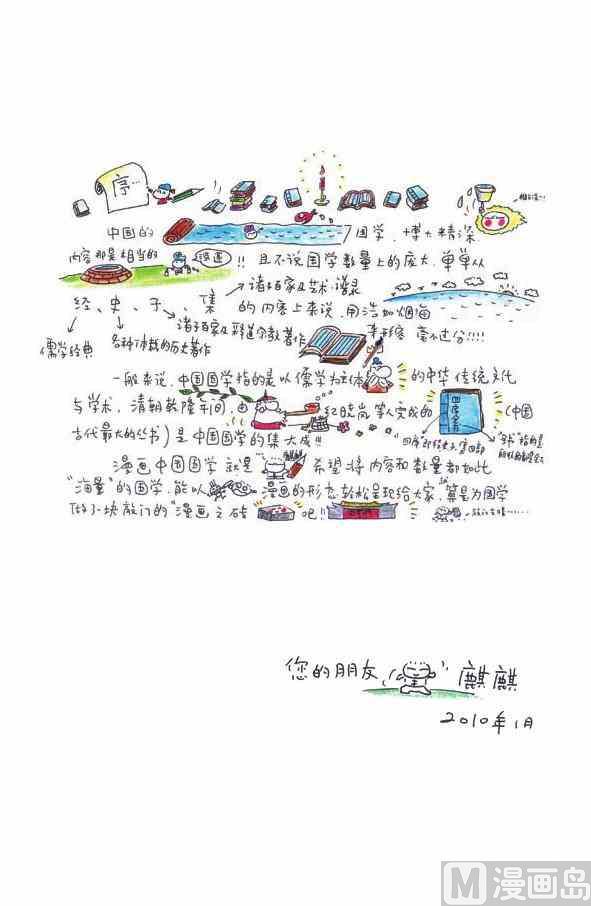 序…
中国的 国学，博大精深
内容都是相当的 深邃 !! 且不说国学数量上的庞大，单单从
经、史、子、集 诸子百家及艺术、谱录 的内容上来说，用浩如烟海
儒学经典 各种体裁的历史著作 诸子百家及释道宗教著作 来形容 毫不过分!!!!
一般来说，中国国学指的是以儒学为主体 的中华传统文化
与学术，清朝乾隆年间，由 纪晓岚等人完成的 四库全书 (中国
古代最大的丛书) 是中国国学的集大成!!
漫画中国国学就是 希望将内容和数量都如此
“海量”的国学，能以 漫画的形态轻松呈现给大家，算是为国学
做了块敲门的“漫画之砖 吧!!
您的朋友 麒麒
2010年1月
M 漫画岛